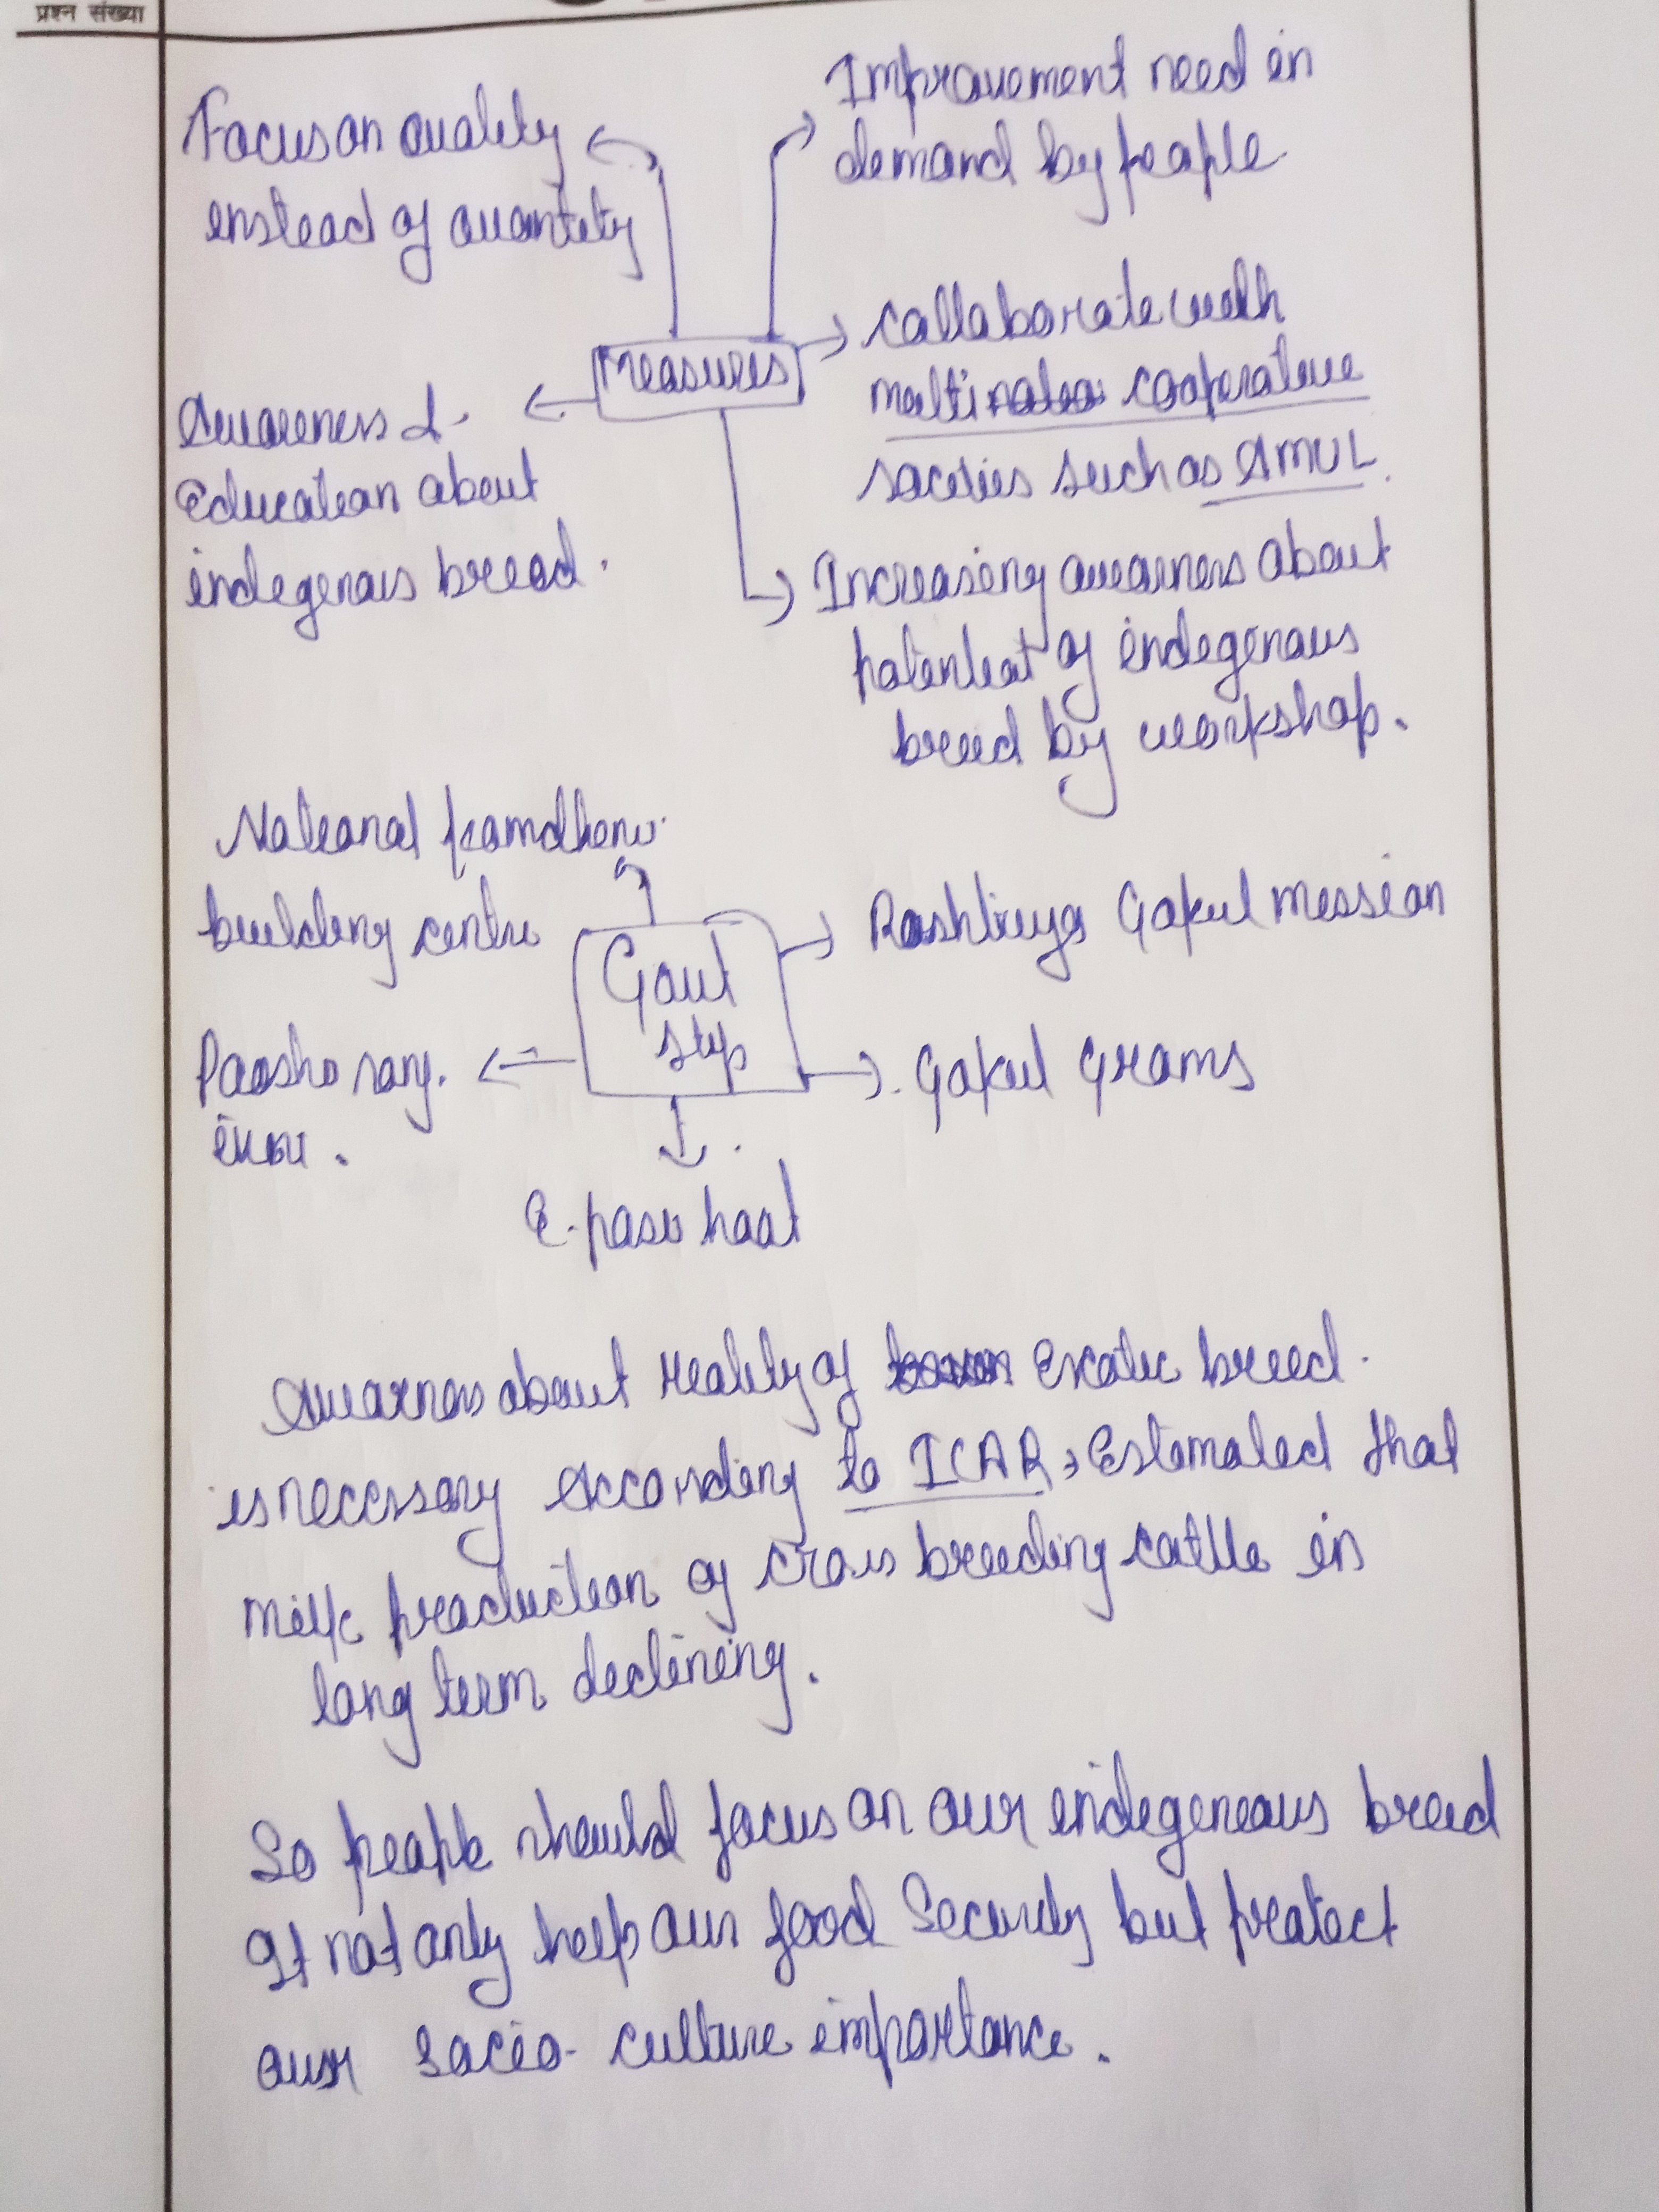 प्रश्न संख्या
Focus on quality
instead of quantity
Improvement need in
demand by people
Measures
collaborate with
cooperative
socities such as AMUL.
Awareness &
Education about
indegenous breed.
Increasing awarness about
potential of indegenous
breed by workshop.
National kamdhenu
building centre
Govt
step
Rashtriya Gokul mession
Gokul Grams
E-pasu haat
Awarness about reality of Exotic breed.
is necessary According to ICAR, Estemated that
milk production of cross breeding cattle in
long term declining.
So people should focus on our endegeneous breed
It not only help our food Security but protect
our socio-culture importance.